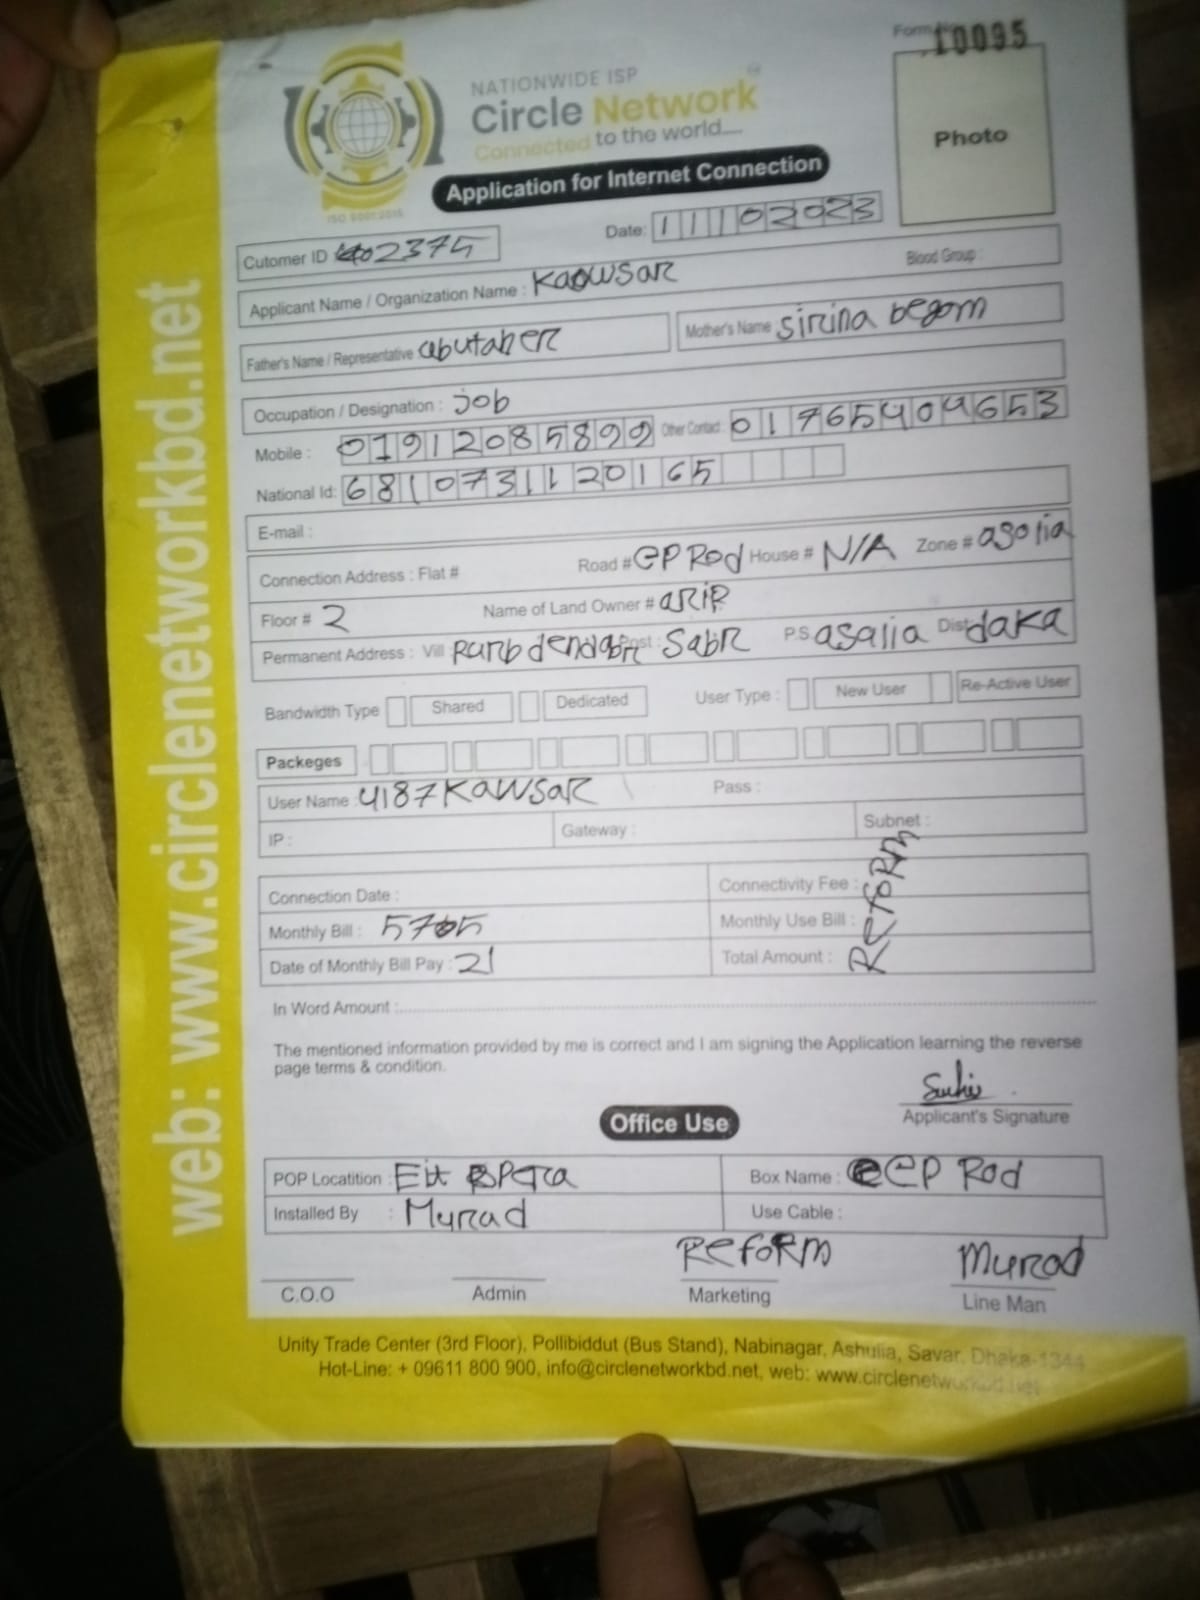 Form No. 10095
NATIONWIDE ISP
Circle Network
Connected to the world.....
ISO 9001:2015
Photo
Application for Internet Connection
Date: 11102023
Cutomer ID 402375
Applicant Name / Organization Name : Kaowsar
Blood Group :
Father's Name / Representative abutaher
Mother's Name sirina begom
Occupation / Designation : job
Mobile : 01912085899 Other Contact : 01765409653
National Id: 6810731120165
E-mail :
Connection Address : Flat # Road # EP Rod House # N/A Zone # asolia
Floor # 2 Name of Land Owner # arif
Permanent Address : Vill Post : Sabr P.S asalia Dist daka
Bandwidth Type Shared Dedicated User Type : New User Re-Active User
Packeges
User Name : 4187Kawsar Pass :
IP : Gateway : Subnet :
Connection Date : Connectivity Fee :
Monthly Bill : 5705 Monthly Use Bill :
Date of Monthly Bill Pay : 21 Total Amount :
Reform
In Word Amount :
The mentioned information provided by me is correct and I am signing the Application learning the reverse
page terms & condition.
Applicant's Signature
Office Use
POP Locatition : Box Name : EP Rod
Installed By : Murad Use Cable :
Reform Murad
C.O.O Admin Marketing Line Man
Unity Trade Center (3rd Floor), Pollibiddut (Bus Stand), Nabinagar, Ashulia, Savar, Dhaka-1344
Hot-Line: + 09611 800 900, info@circlenetworkbd.net, web: www.circlenetworkbd.net
web: www.circlenetworkbd.net